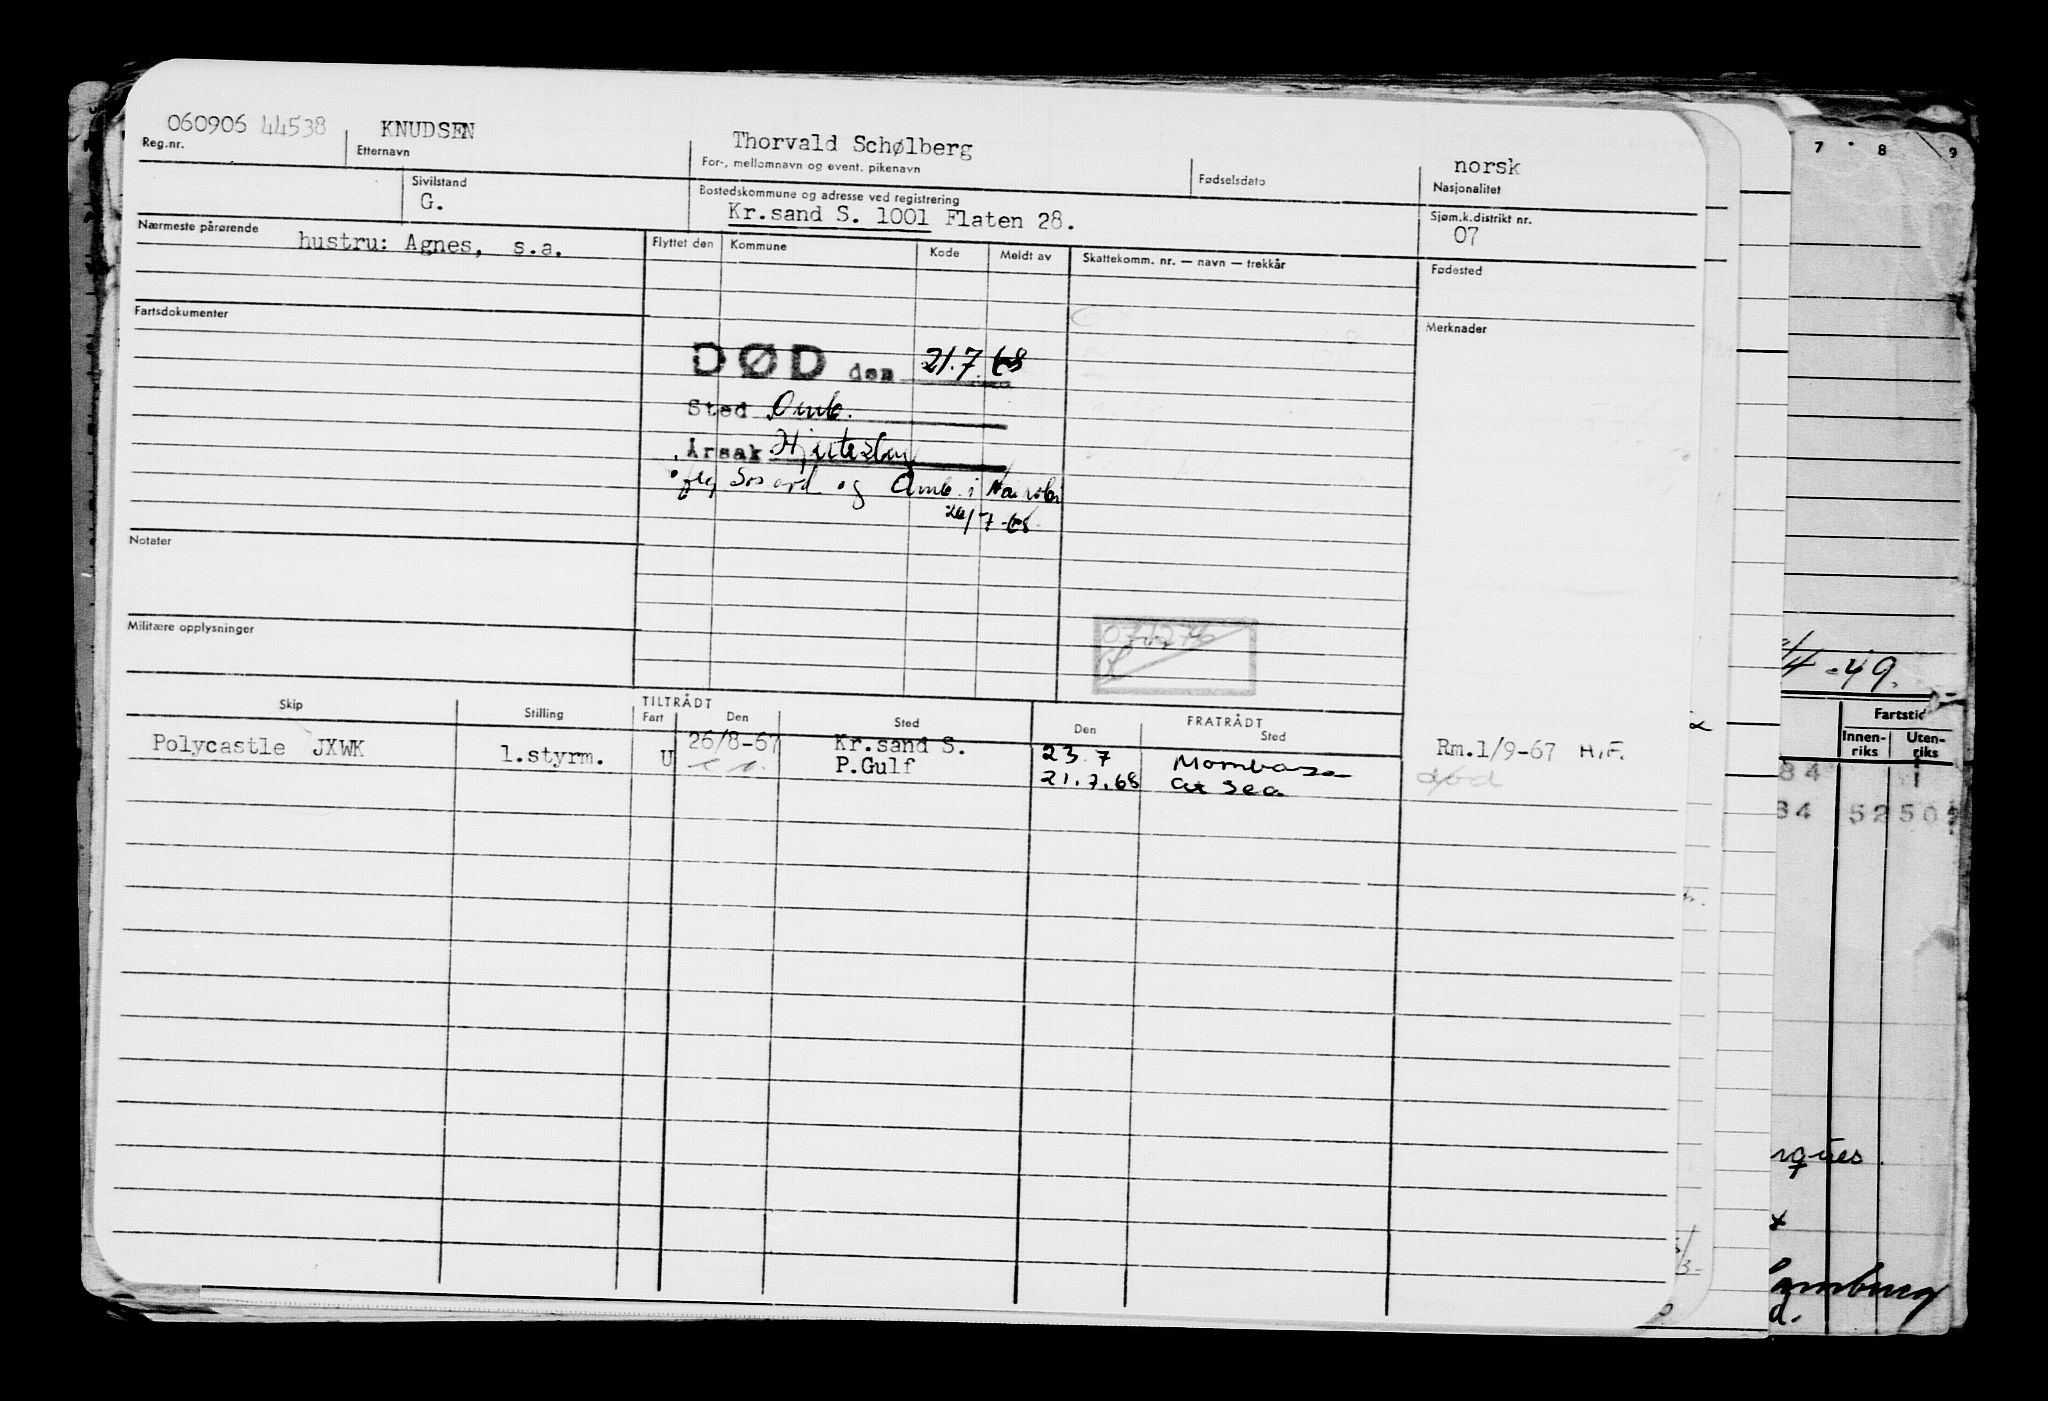 060906 44538 KNUDSEN Thorvald Schølberg norsk
Reg.nr. Etternavn For-, mellomnavn og event. pikenavn Fødselsdato Nasjonalitet
Sivilstand Bostedskommune og adresse ved registrering Sjøm.k.distrikt nr.
G. Kr.sand S. 1001 Flaten 28. 07
Nærmeste pårørende hustru: Agnes, s.a. Flyttet den Kommune Kode Meldt av Skattekomm. nr. — navn — trekkår Fødested
Fartsdokumenter Merknader
DØD den 21.7.68
Sted Omb.
Årsak
og Omb. i Nairobi
/7-68
Notater
Militære opplysninger
Skip Stilling TILTRÅDT Fart Den Sted FRATRÅDT Den Sted
Polycastle JXWK 1.styrm. U 26/8-67 Kr.sand S. 23.7 Mombasa Rm.1/9-67 H.F.
P.Gulf 21.7.68 at Sea død
7 8 9
/4-49.
Fartstid
Innen-riks Uten-riks
84 1
84 52 50
rques.
d.